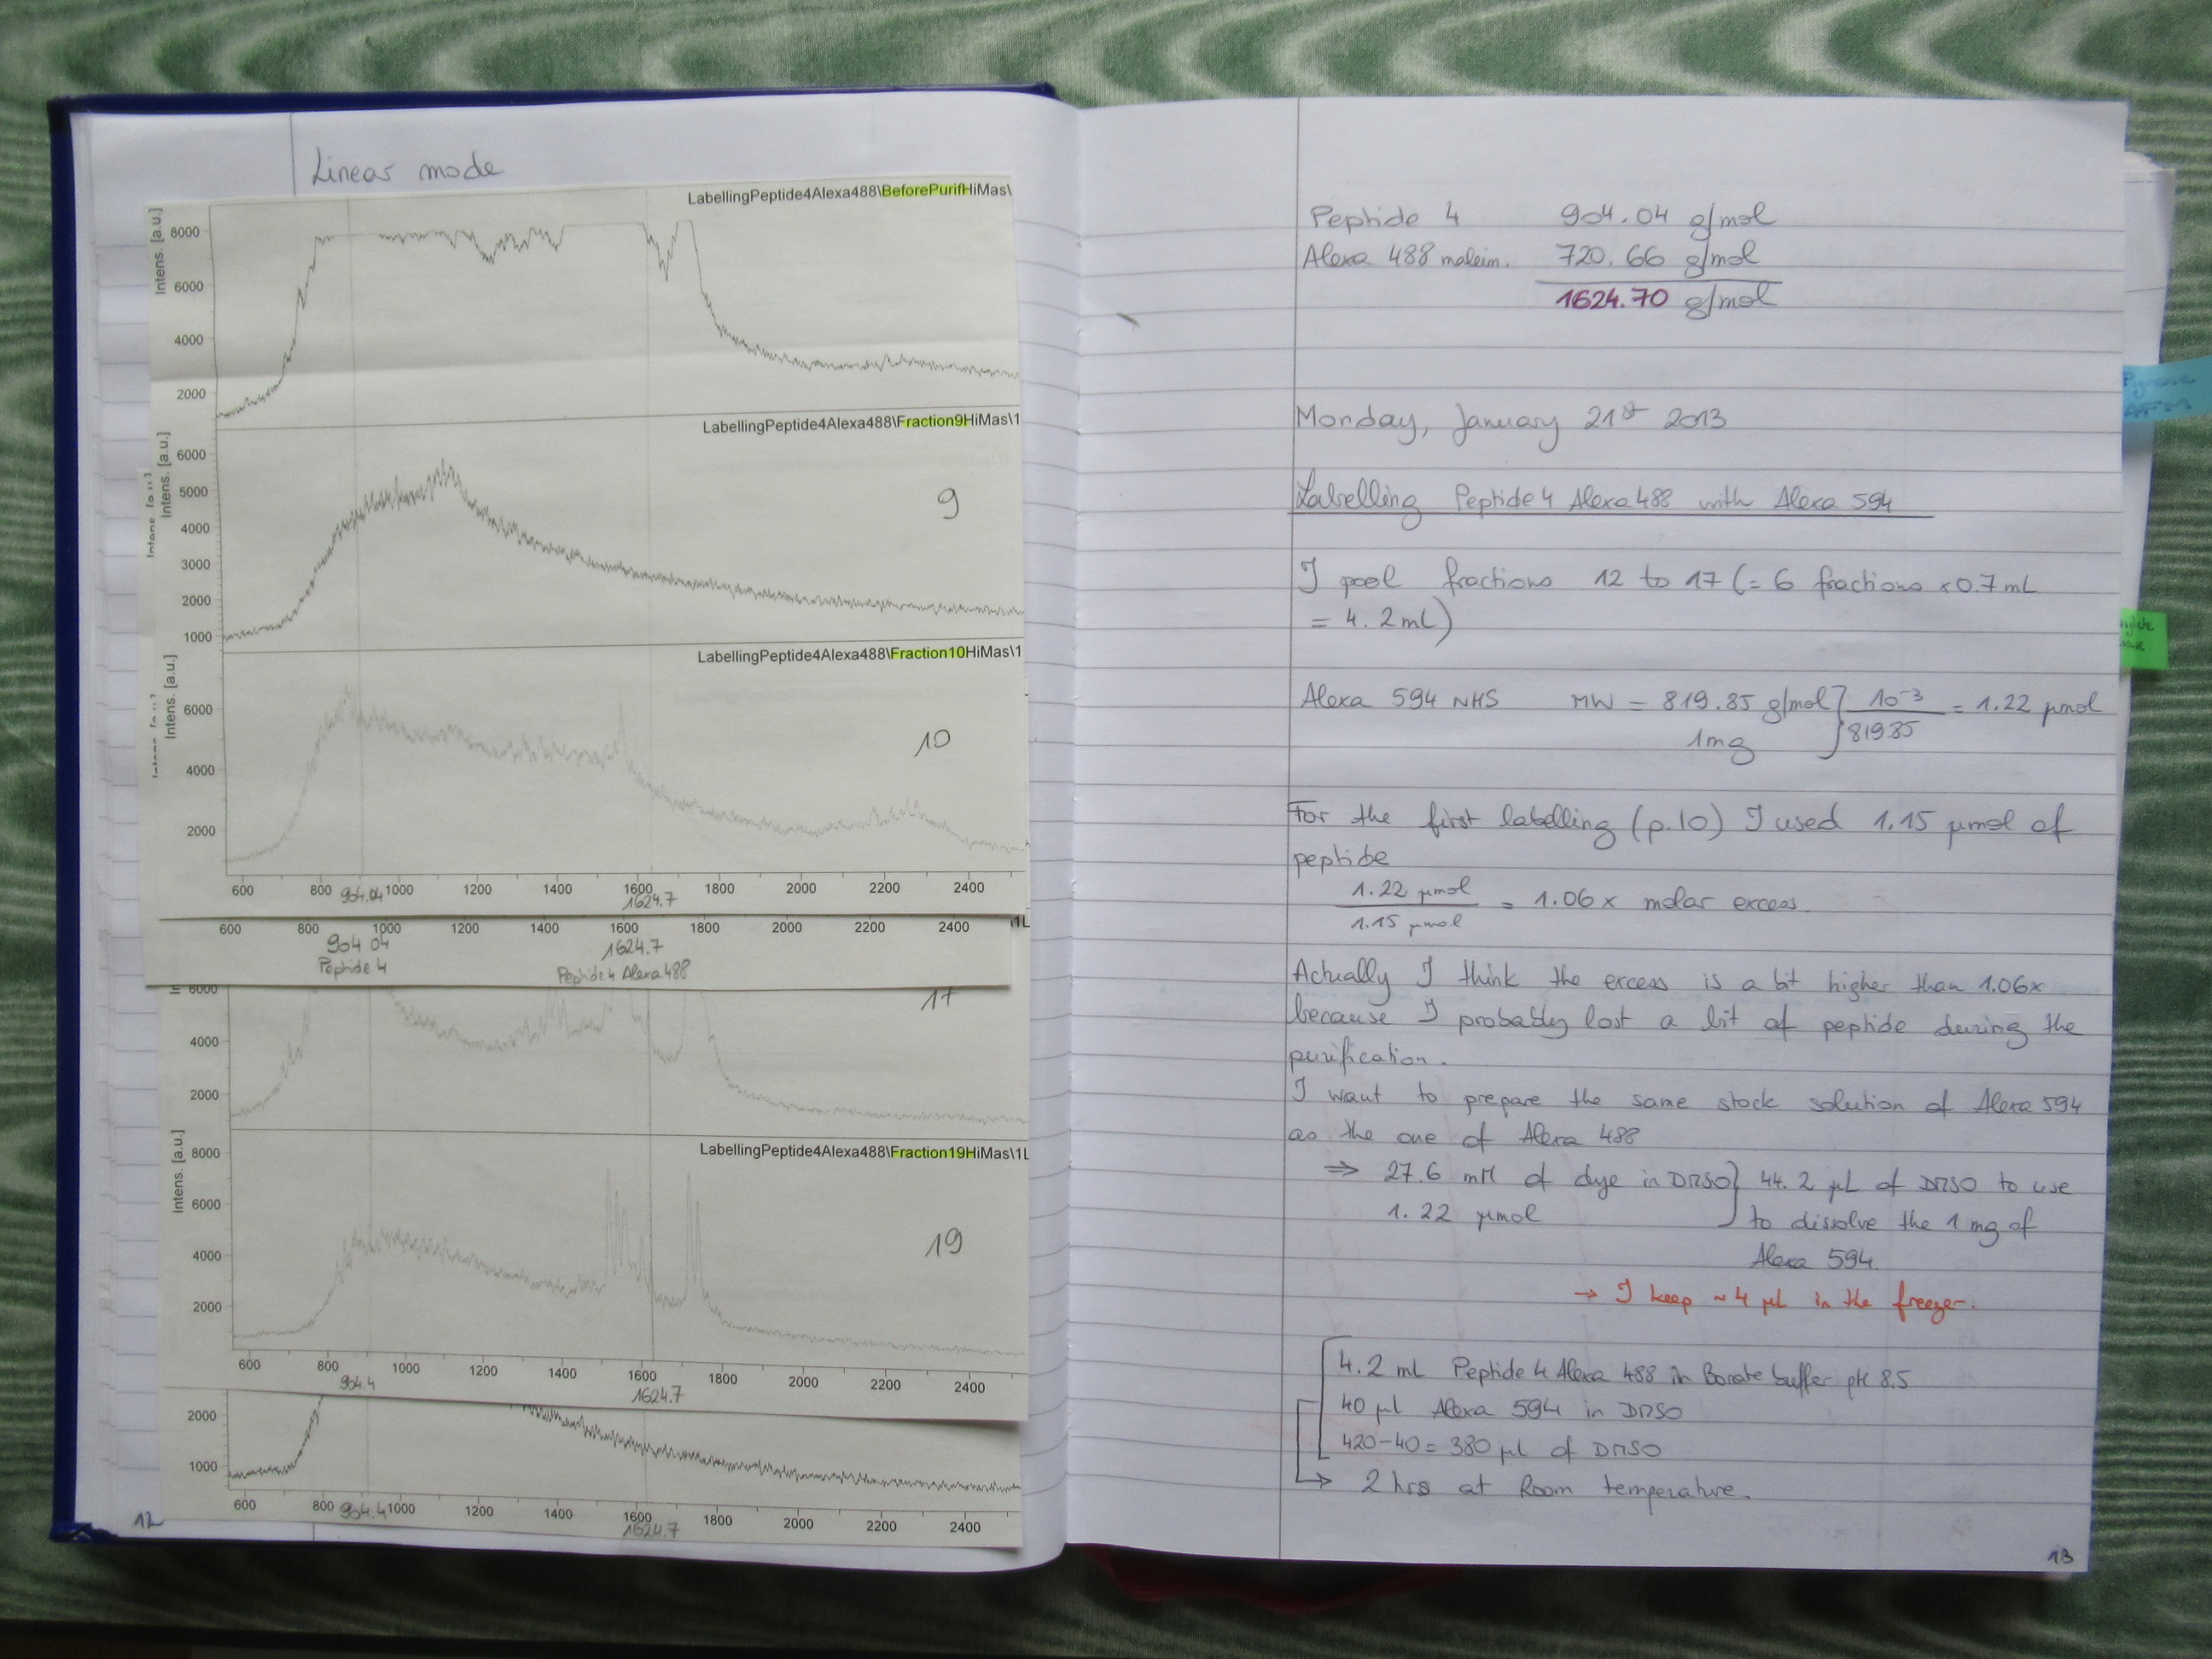 Linear mode
LabellingPeptide4Alexa488\BeforePurifHiMas\
Intens. [a.u.]
8000
6000
4000
2000
LabellingPeptide4Alexa488\Fraction9HiMas\1
Intens. [a.u.]
6000
5000
4000
3000
2000
1000
9
LabellingPeptide4Alexa488\Fraction10HiMas\1
Intens. [a.u.]
6000
4000
2000
10
600 800 1000 1200 1400 1600 1800 2000 2200 2400
904.04 1624.7
600 800 1000 1200 1400 1600 1800 2000 2200 2400
904 04 1624.7
Peptide 4 Peptide 4 Alexa 488
6000
4000
2000
17
LabellingPeptide4Alexa488\Fraction19HiMas\1L
Intens. [a.u.]
8000
6000
4000
2000
19
600 800 1000 1200 1400 1600 1800 2000 2200 2400
904.4 1624.7
2000
1000
600 800 1000 1200 1400 1600 1800 2000 2200 2400
904.4 1624.7
12
Peptide 4 904.04 g/mol
Alexa 488 maleim. 720.66 g/mol
1624.70 g/mol
Monday, January 21st 2013
Labelling Peptide 4 Alexa 488 with Alexa 594
I pool fractions 12 to 17 (= 6 fractions x 0.7 mL
= 4.2 mL)
Alexa 594 NHS MW = 819.85 g/mol } 10⁻³ = 1.22 µmol
1mg 819.85
For the first labelling (p.10) I used 1.15 µmol of
peptide
1.22 µmol
= 1.06 x molar excess.
1.15 µmol
Actually I think the excess is a bit higher than 1.06x
because I probably lost a bit of peptide during the
purification.
I want to prepare the same stock solution of Alexa 594
as the one of Alexa 488
⇒ 27.6 mM of dye in DMSO } 44.2 µL of DMSO to use
1.22 µmol to dissolve the 1 mg of
Alexa 594.
→ I keep ~ 4 µl in the freezer.
4.2 ml Peptide 4 Alexa 488 in Borate buffer pH 8.5
40 µl Alexa 594 in DMSO
420-40 = 380 µl of DMSO
→ 2 hrs at Room temperature.
13